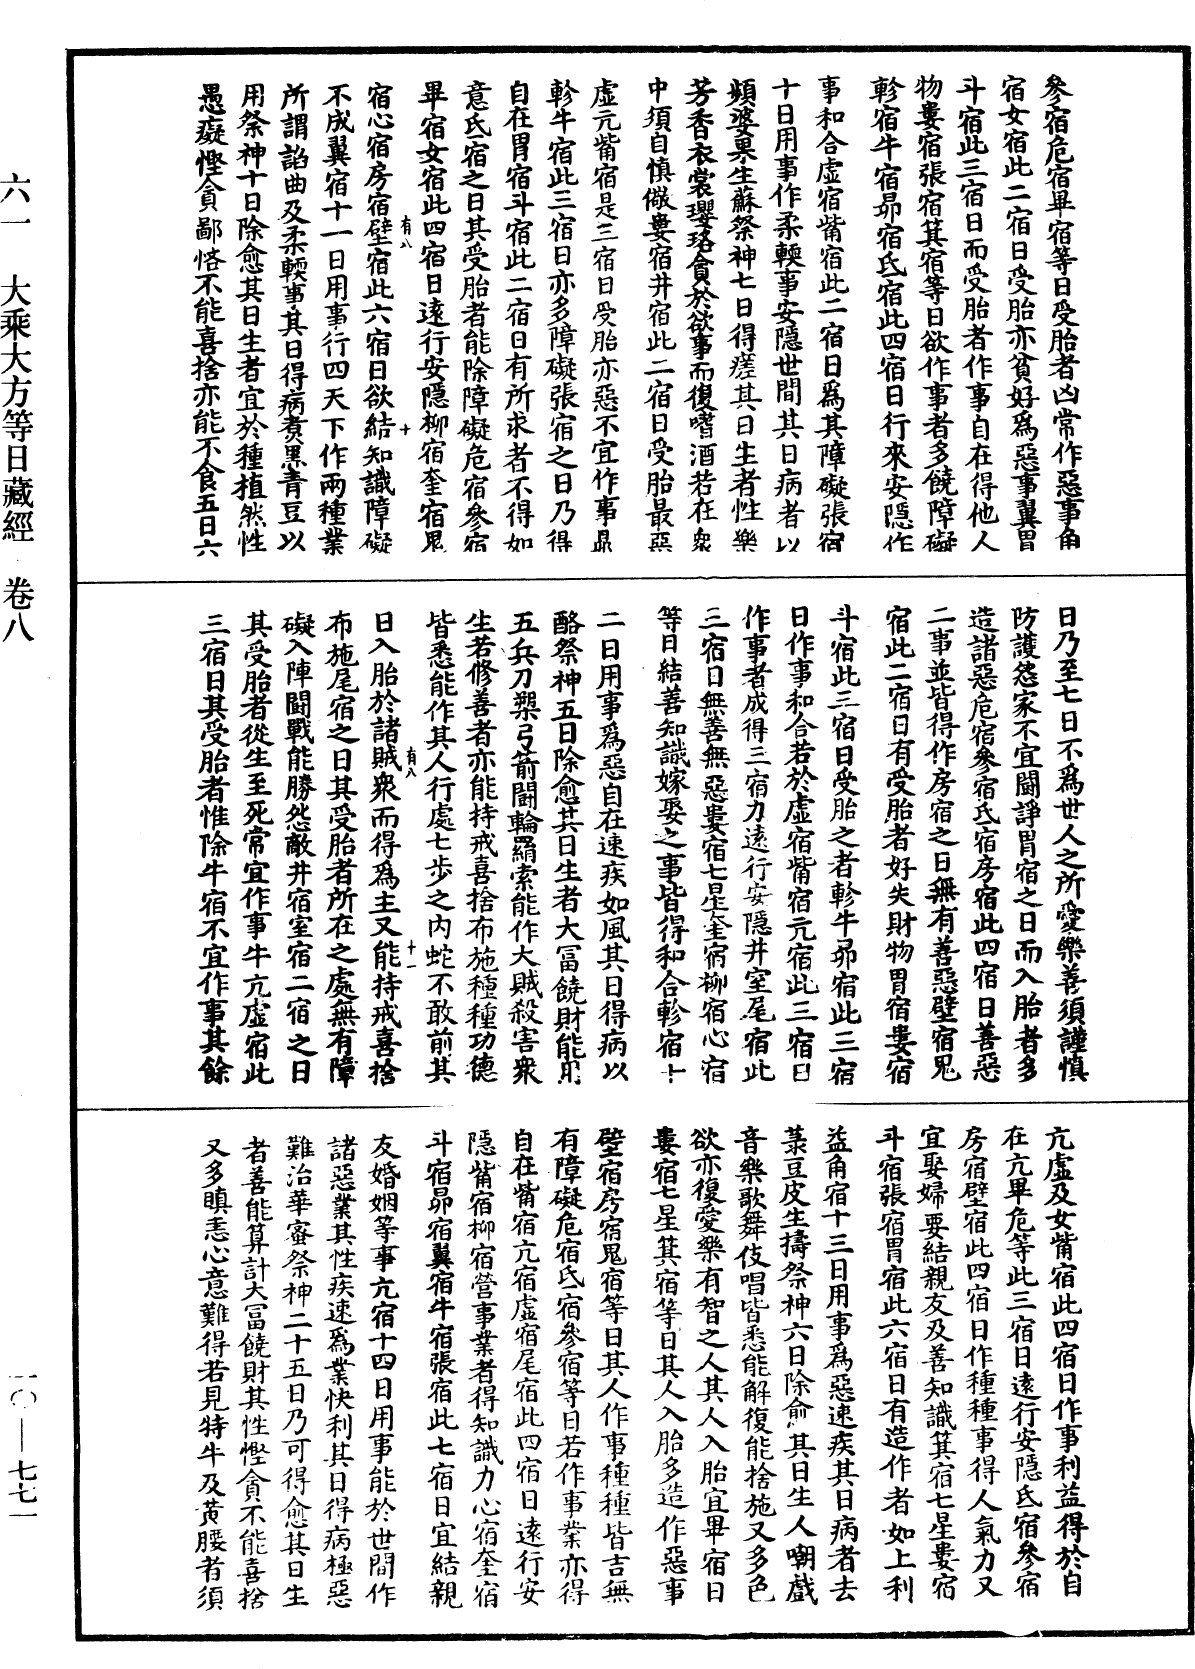 參宿危宿畢宿等日受胎者凶常作惡事角
宿女宿此二宿日受胎亦貧好爲惡事翼胃
斗宿此三宿日而受胎者作事自在得他人
物婁宿張宿箕宿等日欲作事者多饒障礙
軫宿牛宿昴宿氐宿此四宿日行來安隱作
事和合虛宿觜宿此二宿日爲其障礙張宿
十日用事作柔輭事安隱世間其日病者以
頻婆果生蘇祭神七日得瘥其日生者性樂
芳香衣裳瓔珞貪於欲事而復嗜酒若在衆
中須自慎儆婁宿井宿此二宿日受胎最惡
虛亢觜宿是三宿日受胎亦惡不宜作事昴
軫牛宿此三宿日亦多障礙張宿之日乃得
自在胃宿斗宿此二宿日有所求者不得如
意氐宿之日其受胎者能除障礙危宿參宿
畢宿女宿此四宿日遠行安隱柳宿奎宿鬼
宿心宿房宿壁宿此六宿日欲結知識障礙
不成翼宿十一日用事行四天下作兩種業
所謂諂曲及柔輭事其日得病煑黑青豆以
用祭神十日除愈其日生者宜於種植然性
愚癡慳貪鄙悋不能喜捨亦能不食五日六
日乃至七日不爲世人之所愛樂善須謹慎
防護怨家不宜鬬諍胃宿之日而入胎者多
造諸惡危宿參宿氐宿房宿此四宿日善惡
二事並皆得作房宿之日無有善惡壁宿鬼
宿此二宿日有受胎者好失財物胃宿婁宿
斗宿此三宿日受胎之者軫牛昴宿此三宿
日作事和合若於虛宿觜宿亢宿此三宿日
作事者成得三宿力遠行安隱井室尾宿此
三宿日無善無惡婁宿七星奎宿柳宿心宿
等日結善知識嫁娶之事皆得和合軫宿十
二日用事爲惡自在速疾如風其日得病以
酪祭神五日除愈其日生者大富饒財能用
五兵刀槊弓箭鬬輪羂索能作大賊殺害衆
生若修善者亦能持戒喜捨布施種種功德
皆悉能作其人行處七步之內蛇不敢前其
日入胎於諸賊衆而得爲主又能持戒喜捨
布施尾宿之日其受胎者所在之處無有障
礙入陣鬬戰能勝怨敵井宿室宿二宿之日
其受胎者從生至死常宜作事牛亢虛宿此
三宿日其受胎者惟除牛宿不宜作事其餘
亢虛及女觜宿此四宿日作事利益得於自
在亢畢危等此三宿日遠行安隱氐宿參宿
房宿壁宿此四宿日作種種事得人氣力又
宜娶婦要結親友及善知識箕宿七星婁宿
斗宿張宿胃宿此六宿日有造作者如上利
益角宿十三日用事爲惡速疾其日病者去
菉豆皮生擣祭神六日除愈其日生人嘲戲
音樂歌舞伎唱皆悉能解復能捨施又多色
欲亦復愛樂有智之人其人入胎宜畢宿日
婁宿七星箕宿等日其人入胎多造作惡事
壁宿房宿鬼宿等日其人作事種種皆吉無
有障礙危宿氐宿參宿等日若作事業亦得
自在觜宿亢宿虛宿尾宿此四宿日遠行安
隱觜宿柳宿營事業者得知識力心宿奎宿
斗宿昴宿翼宿牛宿張宿此七宿日宜結親
友婚姻等事亢宿十四日用事能於世間作
諸惡業其性疾速爲業快利其日得病極惡
難治華蜜祭神二十五日乃可得愈其日生
者善能算計大富饒財其性慳貪不能喜捨
又多瞋恚心意難得若見特牛及黃腰者須
有八
十
有八
十一
六一 大乘大方等日藏經 卷八
一〇—七七一